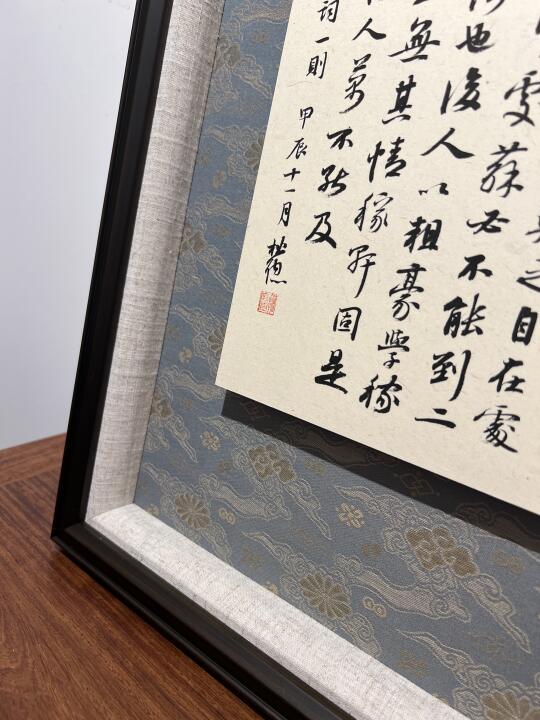 自在處
處蘇必不能到二
也後人以粗豪學稼
無其情稼軒固是
人萬不能及
詞一則 甲辰十一月